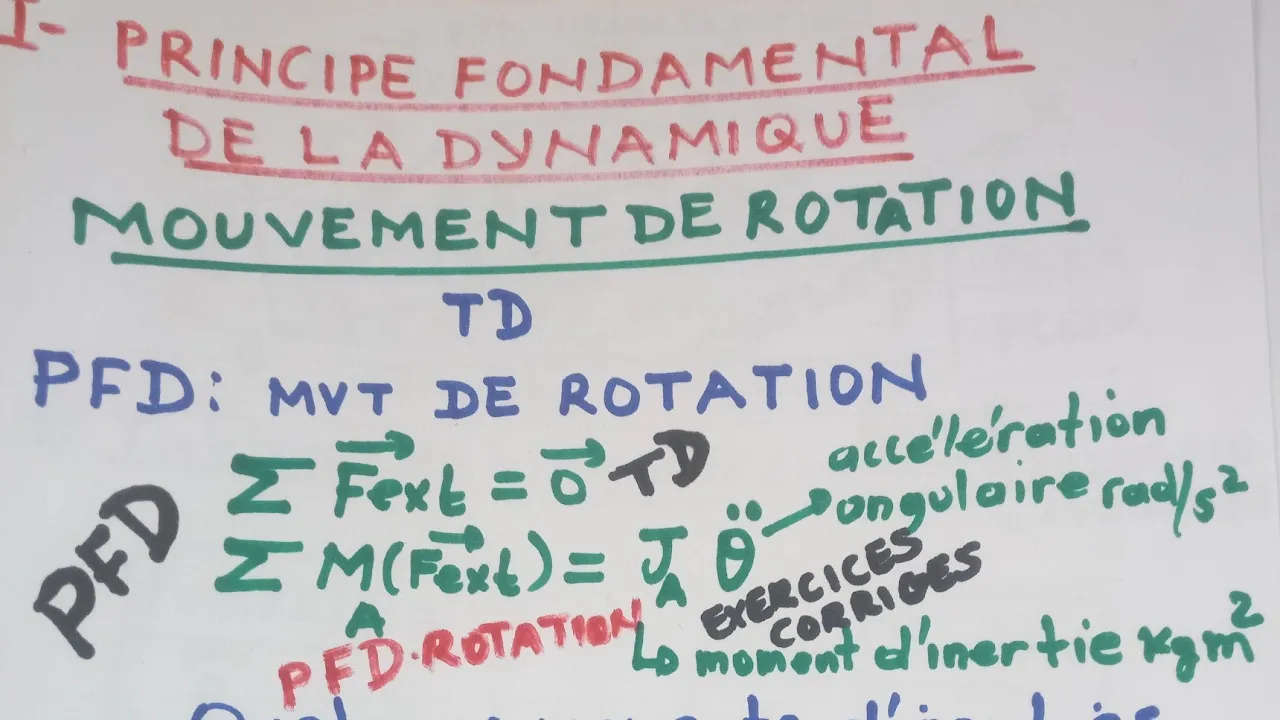 I- PRINCIPE FONDAMENTAL
DE LA DYNAMIQUE
MOUVEMENT DE ROTATION
TD
PFD: MVT DE ROTATION
Σ Fext = 0
TD
accélération
angulaire rad/s²
PFD
Σ M_A(Fext) = J_A θ̈
EXERCICES
CORRIGES
PFD.ROTATION
moment d'inertie kgm²
d'inertie